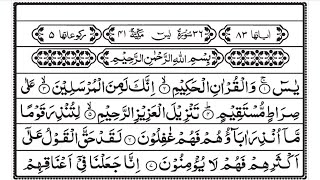 اٰیاتہا ۸۳ ۳۶ سُوْرَةُ یٰسٓ مَكِّيَّةٌ ۴۱ رکوعاتہا ۵
بِسْمِ اللّٰهِ الرَّحْمٰنِ الرَّحِيْمِ
يٰسٓ ۚ وَالْقُرْاٰنِ الْحَكِيْمِ ۙ اِنَّكَ لَمِنَ الْمُرْسَلِيْنَ ۙ عَلٰى
صِرَاطٍ مُّسْتَقِيْمٍ ؕ تَنْزِيْلَ الْعَزِيْزِ الرَّحِيْمِ ۙ لِتُنْذِرَ قَوْمًا
مَّاۤ اُنْذِرَ اٰبَآؤُهُمْ فَهُمْ غٰفِلُوْنَ ۝ لَقَدْ حَقَّ الْقَوْلُ عَلٰۤى
اَكْثَرِهِمْ فَهُمْ لَا يُؤْمِنُوْنَ ۝ اِنَّا جَعَلْنَا فِيْۤ اَعْنَاقِهِمْ